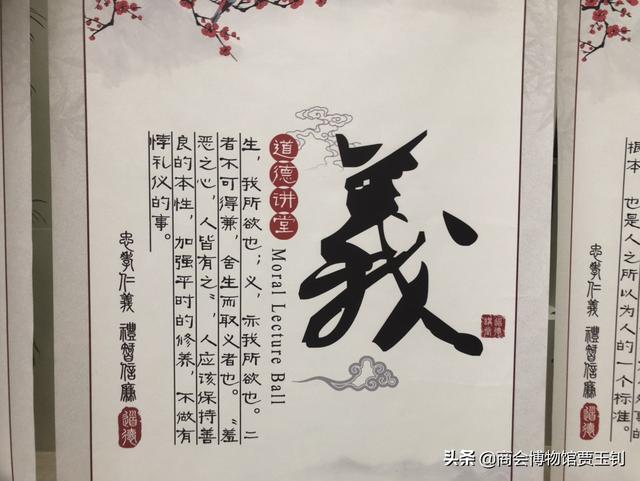 義
道德讲堂
Moral Lecture Ball
生，我所欲也；义，亦我所欲也。二
者不可得兼，舍生而取义者也。“羞
恶之心，人皆有之”，人应该保持善
良的本性，加强平时的修养，不做有
悖礼仪的事。
忠孝仁義 禮智信廉
道德
根本
也是人之所以为人的一个标准。
忠孝仁義 禮智信廉
道德
头条 @商会博物馆贾王钊